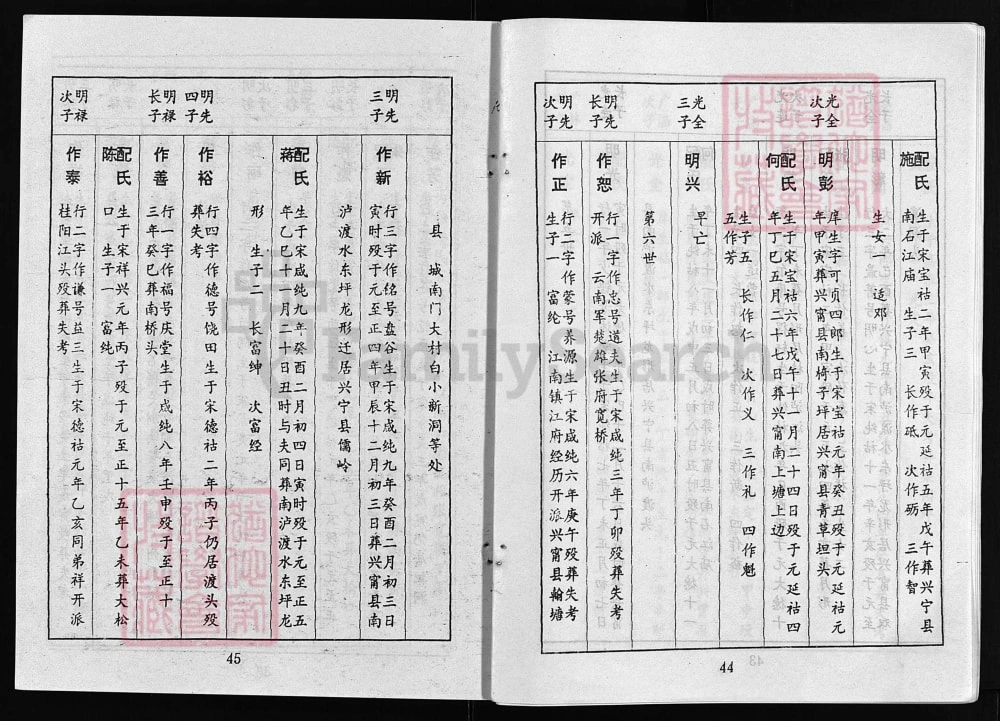 配施氏
生于宋宝祜二年甲寅殁于元延祜五年戊午葬兴宁县
南石江庙 生子三 长作砥 次作砺 三作智
生女一 适邓
光全次子
明彭
庠生字可贞四郎生于宋宝祜元年癸丑殁于元延祜元
年甲寅葬兴甯县南椅子坪居兴甯县青草坦头
配何氏
生于宋宝祜六年戊午十一月二十四日殁于元延祜四
年丁巳五月二十七日葬兴甯南上塘上边
生子五 长作仁 次作义 三作礼 四作魁
五作芳
光全三子
明兴
早亡
第六世
明先长子
作恕
行一字作忠号道夫生于宋咸纯三年丁卯殁葬失考
开派 云南军楚雄张府宽桥
明先次子
作正
行二字作蒙号养源生于宋咸纯六年庚午殁葬失考
生子一 富纶 江南镇江府经历开派兴甯县翰塘
44
县 城南门大村白小新洞等处
明先三子
作新
行三字作铭号盘谷生于宋咸纯九年癸酉二月初三日
寅时殁于元至正四年甲辰十二月初三日葬兴甯县南
泸渡水东坪龙形迁居兴宁县儒岭
配蒋氏
生于宋咸纯九年癸酉二月初四日寅时殁于元至正五
年乙巳十一月二十日丑时与夫同葬南泸渡水东坪龙
形 生子二 长富绅 次富经
明先四子
作裕
行四字作德号饶田生于宋德祜二年丙子仍居渡头殁
葬失考
明禄长子
作善
行一字作福号庆堂生于咸纯八年壬申殁于至正十
三年癸巳葬南桥头
配陈氏
生于宋祥兴元年丙子殁于元至正十五年乙未葬大松
口 生子一 富纯
明禄次子
作泰
行二字作谦号益三生于宋德祜元年乙亥同弟祥开派
桂阳江头殁葬失考
45
FamilySearch